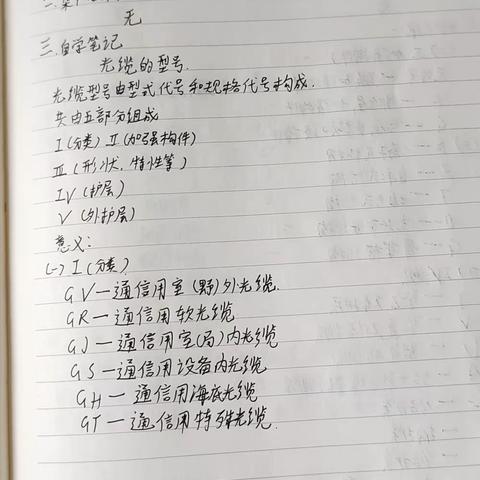 无
三.自学笔记
光缆的型号.
光缆型号由型式代号和规格代号构成.
共由五部分组成
I(分类) II(加强构件)
III(形状、特性等)
IV(护层)
V(外护层)
意义:
(一) I(分类)
GV—通信用室(野)外光缆.
GR—通信用软光缆
GJ—通信用室(局)内光缆
GS—通信用设备内光缆
GH—通信用海底光缆
GT—通信用特殊光缆.